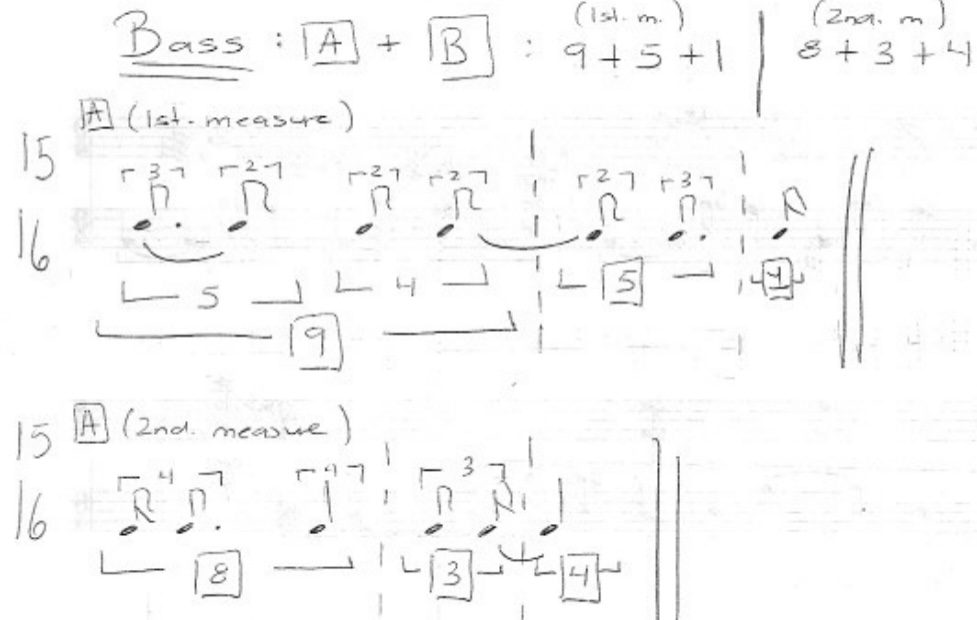 (1st. m.) (2nd. m)
Bass : A + B : 9 + 5 + 1 | 8 + 3 + 4
A (1st. measure)
15
16
3 2 2 2 2 3
5 4 5 1
9
15 A (2nd. measure)
16
4 4 3
8 3 4